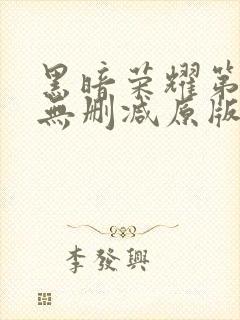 黑暗荣耀第
無删减原版
李發興